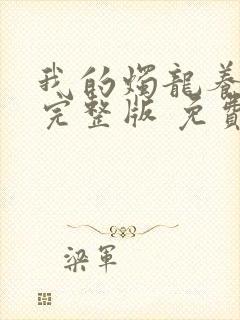 我的燭龍養
完整版 免費
梁軍